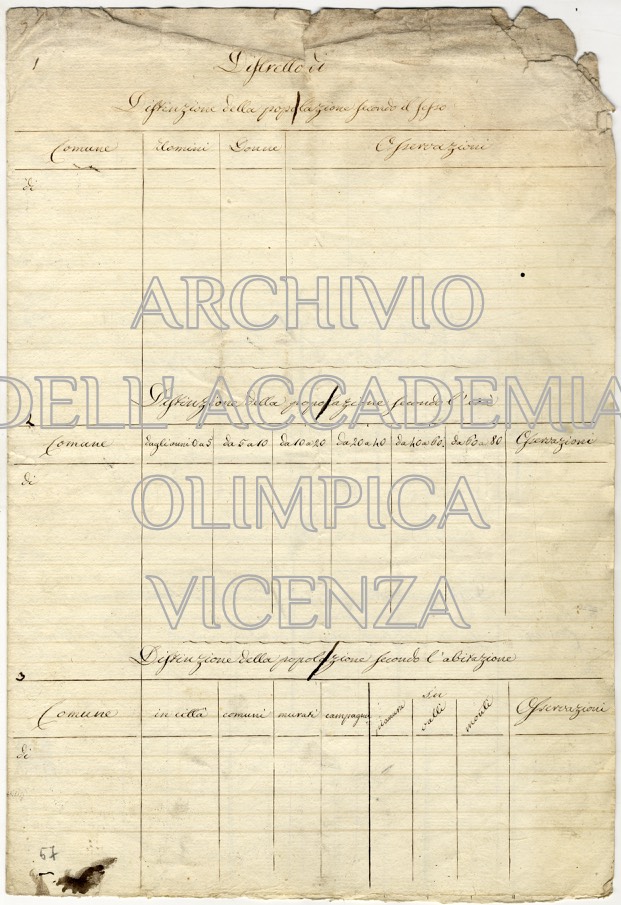 1
Distretto di
Distinzione della popolazione secondo il sesso
Comune Uomini Donne Osservazioni
di
ARCHIVIO
DELL'ACCADEMIA
Distinzione della popolazione secondo l'età
2
Comune dagli anni 0 a 5 da 5 a 10 da 10 a 20 da 20 a 40 da 40 a 60 da 60 a 80 Osservazioni
di
OLIMPICA
VICENZA
Distinzione della popolazione secondo l'abitazione
3
in
Comune in città comuni murati campagna pianura valli monti Osservazioni
di
57